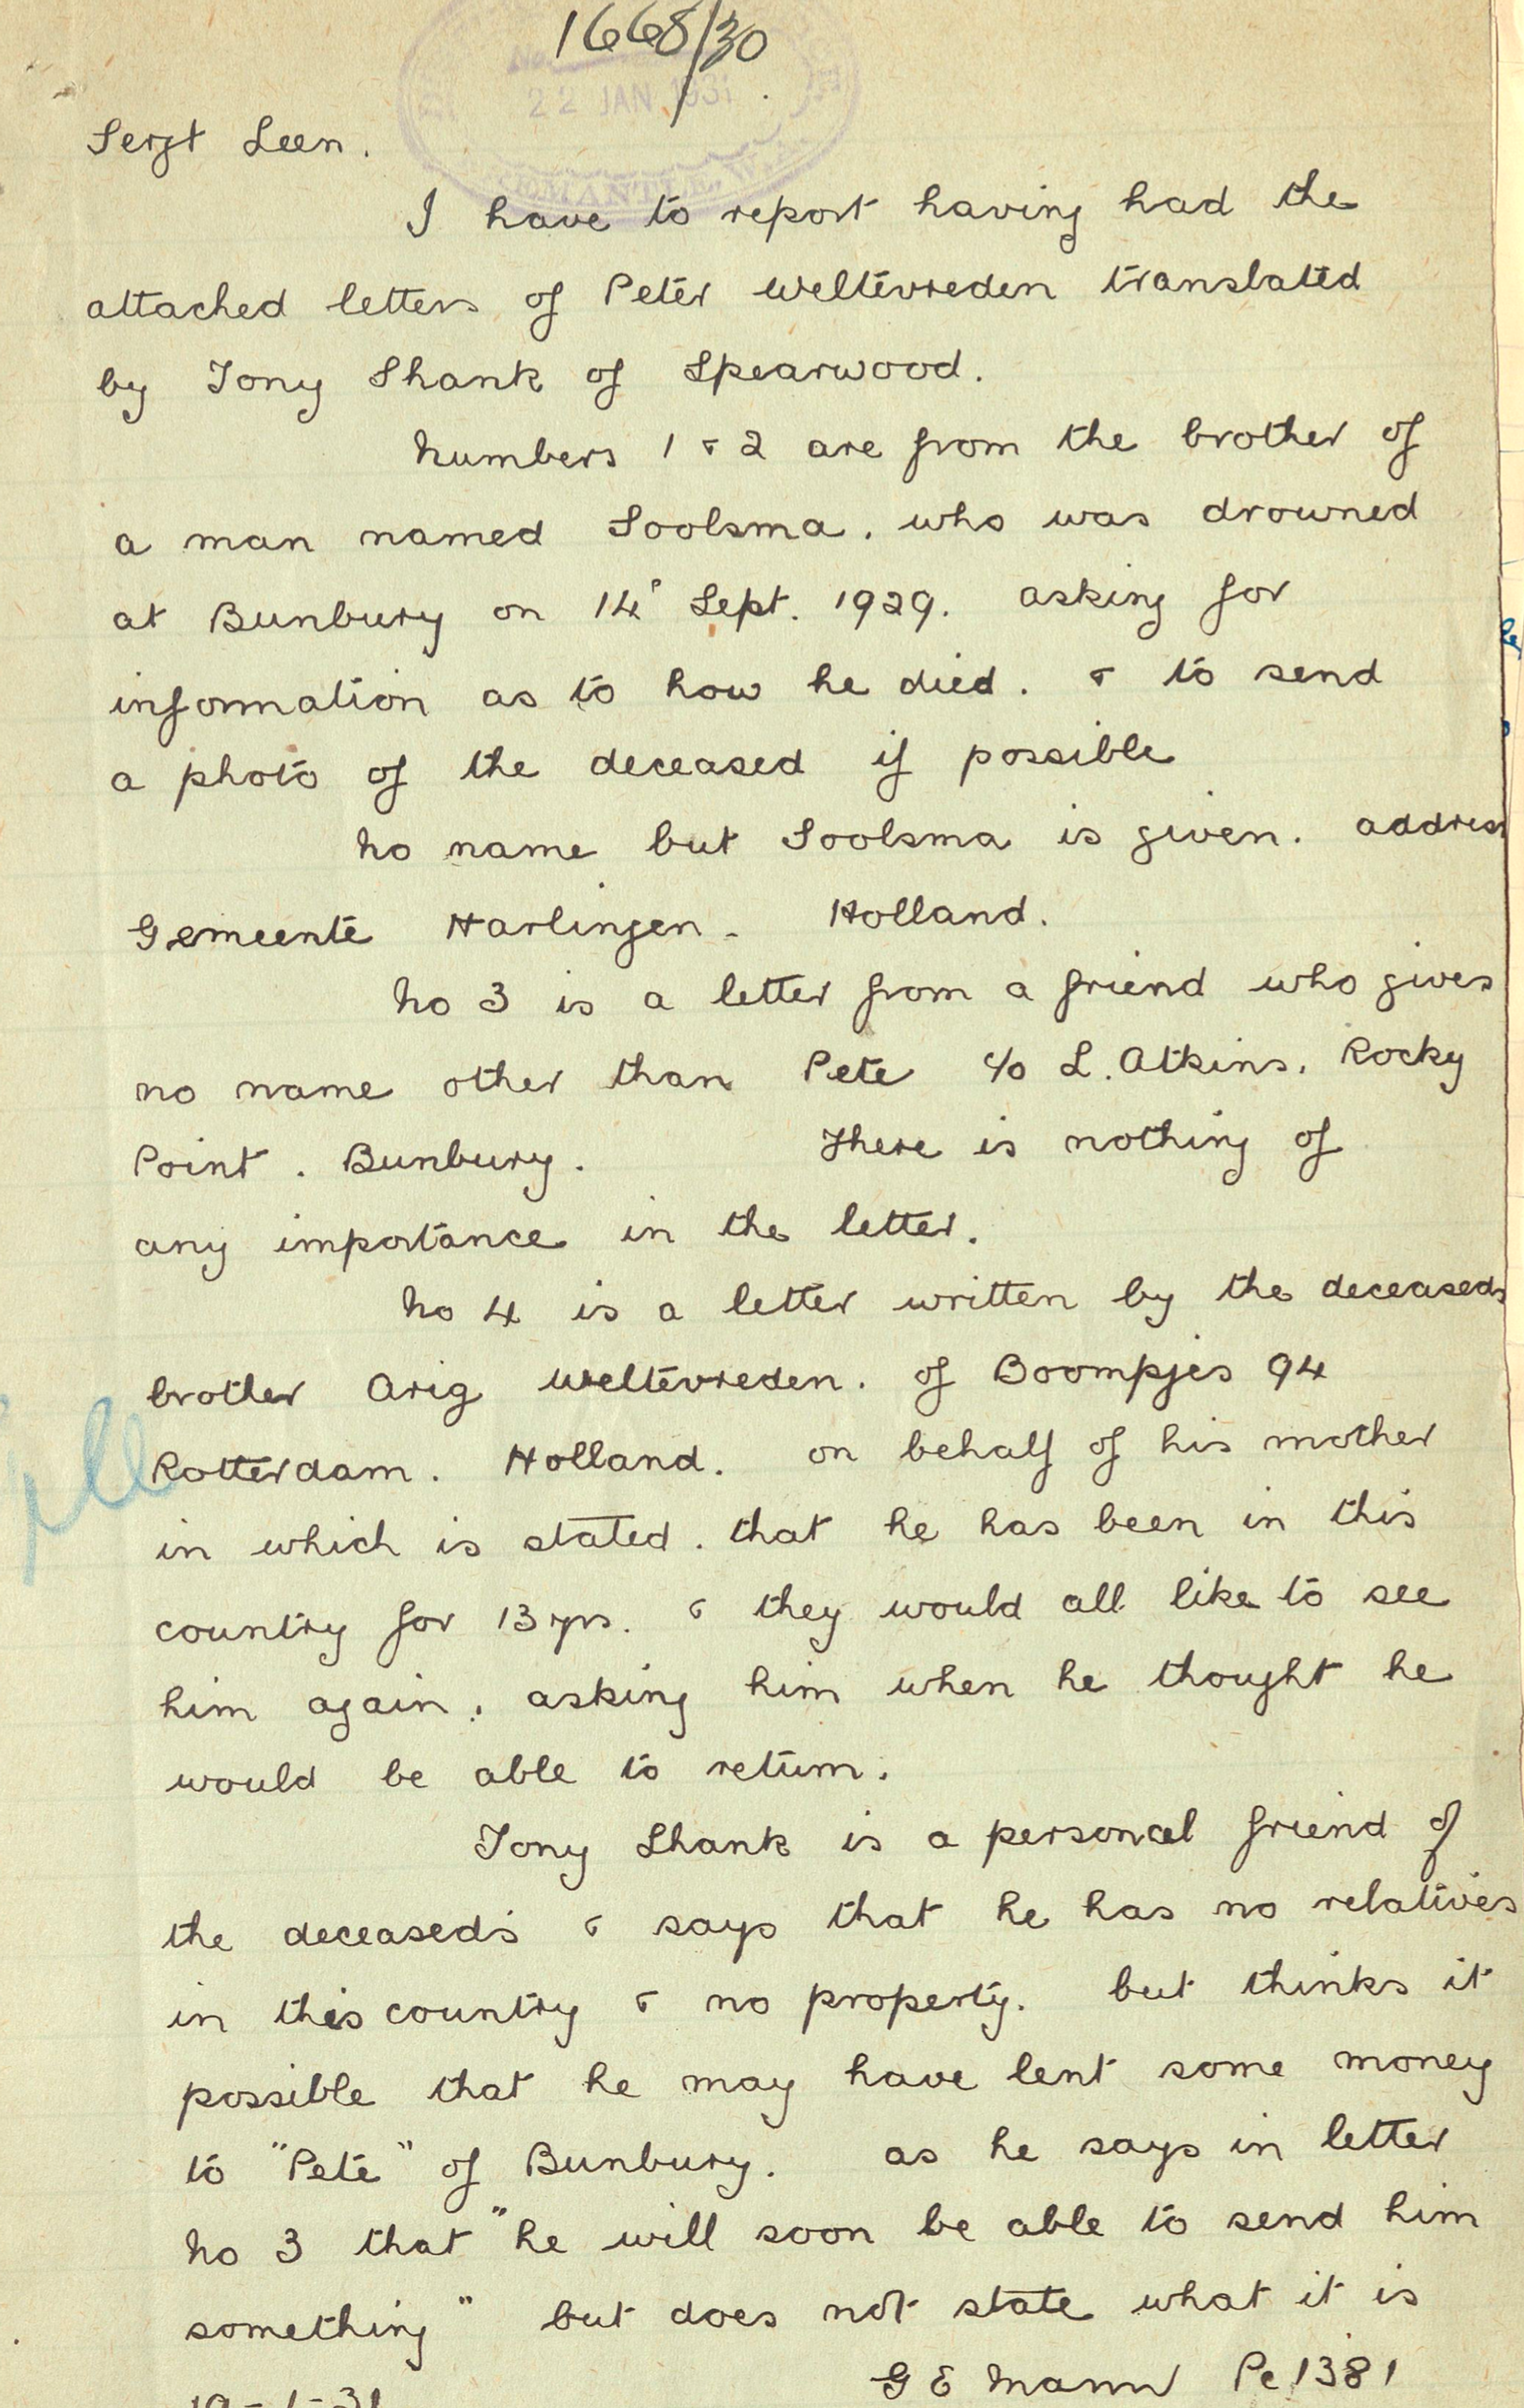 1668/30
22 JAN 1931
FREMANTLE, W.A.
Sergt Leen.
I have to report having had the
attached letters of Peter Weltevreden translated
by Tony Shank of Spearwood.
Numbers 1 & 2 are from the brother of
a man named Soolsma. who was drowned
at Bunbury on 14° Sept. 1929. asking for
information as to how he died. & to send
a photo of the deceased if possible
No name but Soolsma is given. address
Gemeente Harlingen - Holland.
No 3 is a letter from a friend who gives
no name other than Pete c/o L. Atkins. Rocky
Point. Bunbury. There is nothing of
any importance in the letter.
No 4 is a letter written by the deceaseds
brother Arig Weltevreden. of Boompjes 94
Rotterdam. Holland. on behalf of his mother
in which is stated. that he has been in this
country for 13 yrs. & they would all like to see
him again. asking him when he thought he
would be able to return.
Tony Shank is a personal friend of
the deceased's & says that he has no relatives
in this country & no property. but thinks it
possible that he may have lent some money
to "Pete" of Bunbury. as he says in letter
No 3 that "he will soon be able to send him
something" but does not state what it is
G E Mann Pc 1381
19-1-31